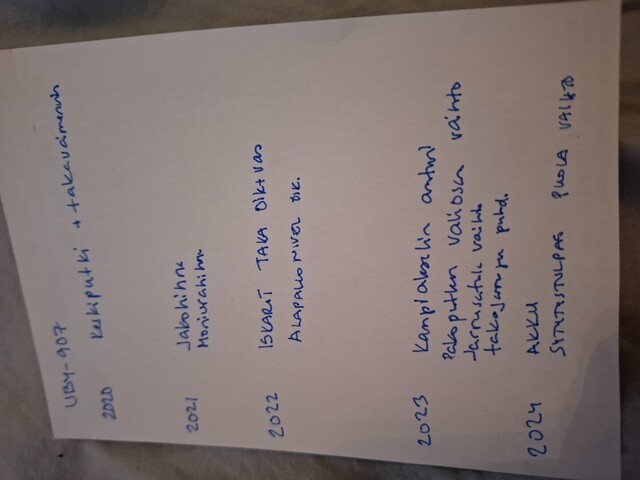 UBY-907
2020 Keskiputki + takavaimennin
2021 Jakohihna
Moniurahihna
2022 ISKARIT TAKA OIK+VAS
ALAPALLONIVEL OIK.
2023 Kampiakselin anturi
Pakoputken väliosan vaihto
Jarrusatula vaihto
takajarrujen puhd.
2024 AKKU
SYTYTYSTULPAT PUOLA VAIHTO